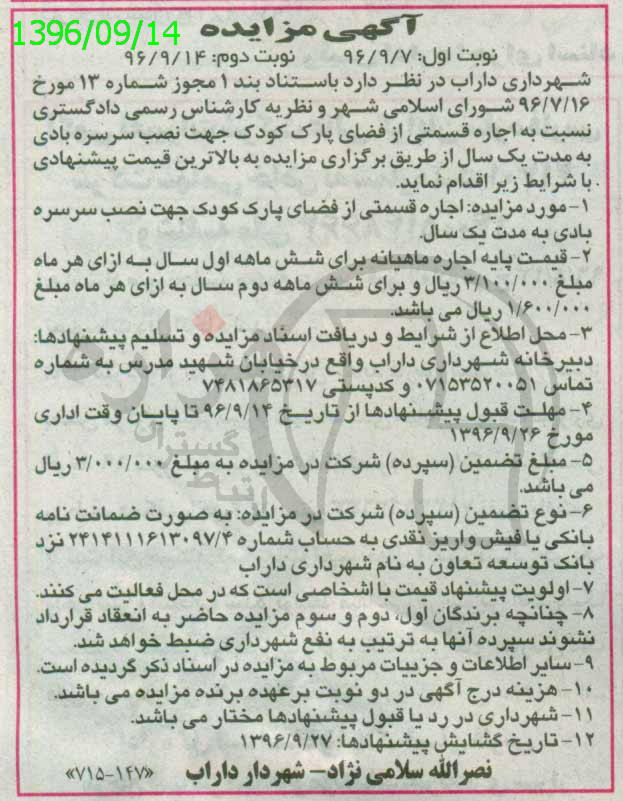 آگهی مزایده
1396/09/14
نوبت اول: ۹۶/۹/۷ نوبت دوم: ۹۶/۹/۱۴
شهرداری داراب در نظر دارد باستناد بند ۱ مجوز شماره ۱۳ مورخ
۹۶/۷/۱۶ شورای اسلامی شهر و نظریه کارشناس رسمی دادگستری
نسبت به اجاره قسمتی از فضای پارک کودک جهت نصب سرسره بادی
به مدت یک سال از طریق برگزاری مزایده به بالاترین قیمت پیشنهادی
با شرایط زیر اقدام نماید.
۱- مورد مزایده: اجاره قسمتی از فضای پارک کودک جهت نصب سرسره
بادی به مدت یک سال.
۲- قیمت پایه اجاره ماهیانه برای شش ماهه اول سال به ازای هر ماه
مبلغ ۳/۱۰۰/۰۰۰ ریال و برای شش ماهه دوم سال به ازای هر ماه مبلغ
۱/۶۰۰/۰۰۰ ریال می باشد.
۳- محل اطلاع از شرایط و دریافت اسناد مزایده و تسلیم پیشنهادها:
دبیرخانه شهرداری داراب واقع درخیابان شهید مدرس به شماره
تماس ۰۷۱۵۳۵۲۰۰۵۱ و کدپستی ۷۴۸۱۸۶۵۳۱۷
۴- مهلت قبول پیشنهادها از تاریخ ۹۶/۹/۱۴ تا پایان وقت اداری
مورخ ۱۳۹۶/۹/۲۶
۵- مبلغ تضمین (سپرده) شرکت در مزایده به مبلغ ۳/۰۰۰/۰۰۰ ریال
می باشد.
۶- نوع تضمین (سپرده) شرکت در مزایده: به صورت ضمانت نامه
بانکی یا فیش واریز نقدی به حساب شماره ۲۴۱۴۱۱۱۶۱۳۰۹۷/۴ نزد
بانک توسعه تعاون به نام شهرداری داراب
۷- اولویت پیشنهاد قیمت با اشخاصی است که در محل فعالیت می کنند.
۸- چنانچه برندگان اول، دوم و سوم مزایده حاضر به انعقاد قرارداد
نشوند سپرده آنها به ترتیب به نفع شهرداری ضبط خواهد شد.
۹- سایر اطلاعات و جزییات مربوط به مزایده در اسناد ذکر گردیده است.
۱۰- هزینه درج آگهی در دو نوبت برعهده برنده مزایده می باشد.
۱۱- شهرداری در رد یا قبول پیشنهادها مختار می باشد.
۱۲- تاریخ گشایش پیشنهادها: ۱۳۹۶/۹/۲۷
نصرالله سلامی نژاد- شهردار داراب «۷۱۵-۱۴۷»